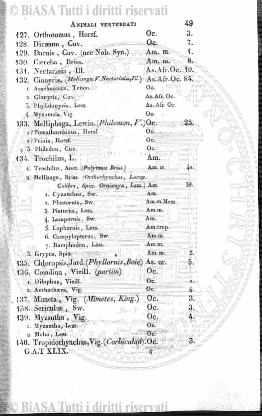 © BiASA Tutti i diritti riservati
ANIMALI VERTEBRATI 49
127. Orthotomus, Horsf. Oc. 3.
128. Dicæum, Cuv. Oc. 7.
129. Dacnis, Cuv. (nec Nob. Syn.) Am. m. 1.
130. Cæreba, Briss. Am. m. 8.
131. Nectarinia, Ill. As. Afr. Oc. 10.
132. Cinnyris, As. Afr. Oc. 85.
1. Arachnothera, Temm. Oc.
2. Cinnyris, Cuv. As. Afr. Oc.
3. Ptiloturis, Less. As. Afr. Oc.
4. Myzomela, Vig. Oc.
133. Melliphaga, Lewin. (Philemon, V.) Oc. 25.
1. Pomathorhinus, Horsf. Oc.
2. Prinia, Horsf. Oc.
3. Philedon, Cuv. Oc.
134. Trochilus, L. Am.
1. Trochilus, Auct. (Polytmus Briss.) Am. m. 40.
2. Mellisuga, Briss. (Orthorhynchus, Lacep.
Colibri, Spix. Ornismya, Less.) Am. 50.
1. Cynanthus, Sw. Am.
2. Phætornis, Sw. Am. m Mess.
3. Platurus, Less. Am. m.
4. Lampornis, Sw. Am. m.
5. Lophornis, Less. Am. trop.
6. Campylopterus, Sw. Am. m.
7. Ramphodon, Less. Am. m.
3. Grypus, Spix. Am. m. 3.
135. Chloropsis, Jard. (Phyllornis, Boie) As. or. 5.
136. Creadion, Vieill. (partim) Oc.
1. Dilophus, Vieill. Oc. 1.
2. Anthochæra, Vig. Oc. 4.
137. Mimeta, Vig. (Mimetes, King.) Oc. 3.
138. Sericulus, Sw. Oc. 3.
139. Myzantha, Vig. Oc. 4.
1. Myzantha, Less. Oc.
2. Moho, Less. Oc.
140. Tropidorhynchus, Vig. (Corbicalao). Oc. 3.
G A. T XLIX. 4
© BiASA Tutti i diritti riservati